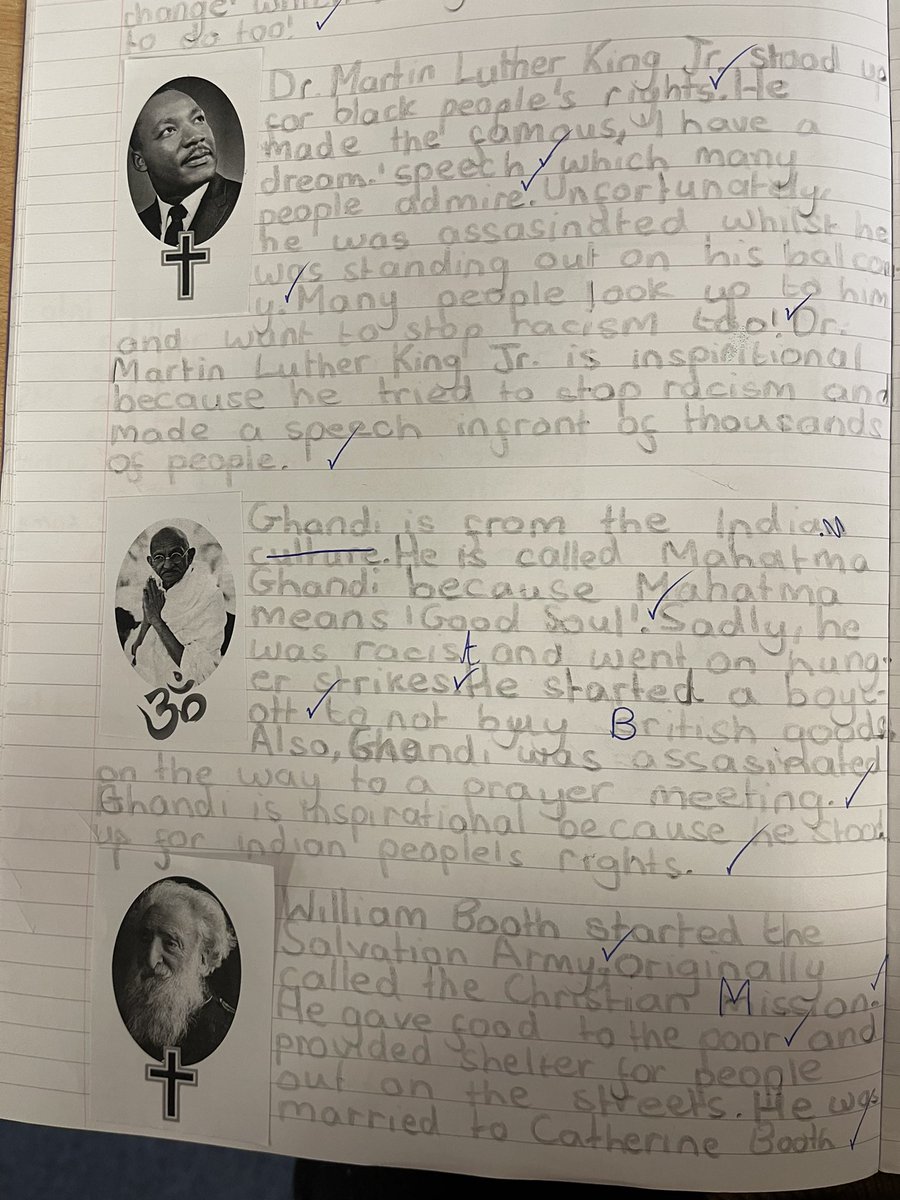 change
to do too!
Dr. Martin Luther King Jr. stood up
for black people's rights. He
made the famous, 'I have a
dream.' speech which many
people admire. Unfortunately,
he was assasinated whilst he
was standing out on his balcon-
y. Many people look up to him
and want to stop racism too! Dr.
Martin Luther King Jr. is inspiritional
because he tried to stop racism and
made a speech infront of thousands
of people.
Ghandi is from the Indian
culture. He is called Mahatma
Ghandi because Mahatma
means 'Good Soul'. Sadly, he
was racist and went on hung-
er strikes. He started a boyc-
ott to not buy British goods.
Also, Ghandi was assasinated
on the way to a prayer meeting.
Ghandi is inspirational because he stood
up for indian people's rights.
ॐ
William Booth started the
Salvation Army, originally
called the Christian Mission.
He gave food to the poor and
provided shelter for people
out on the streets. He was
married to Catherine Booth